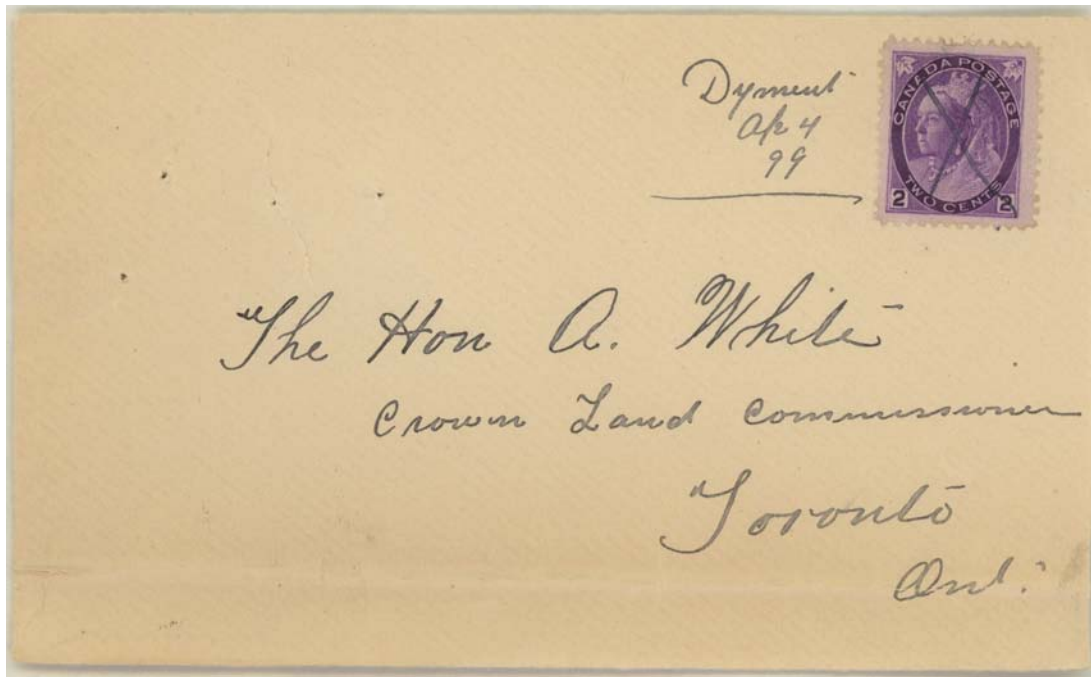 Dyment
Ap 4
99
CANADA POSTAGE
TWO CENTS
2 2
The Hon A. White
Crown Land Commissioner
Toronto
Ont.